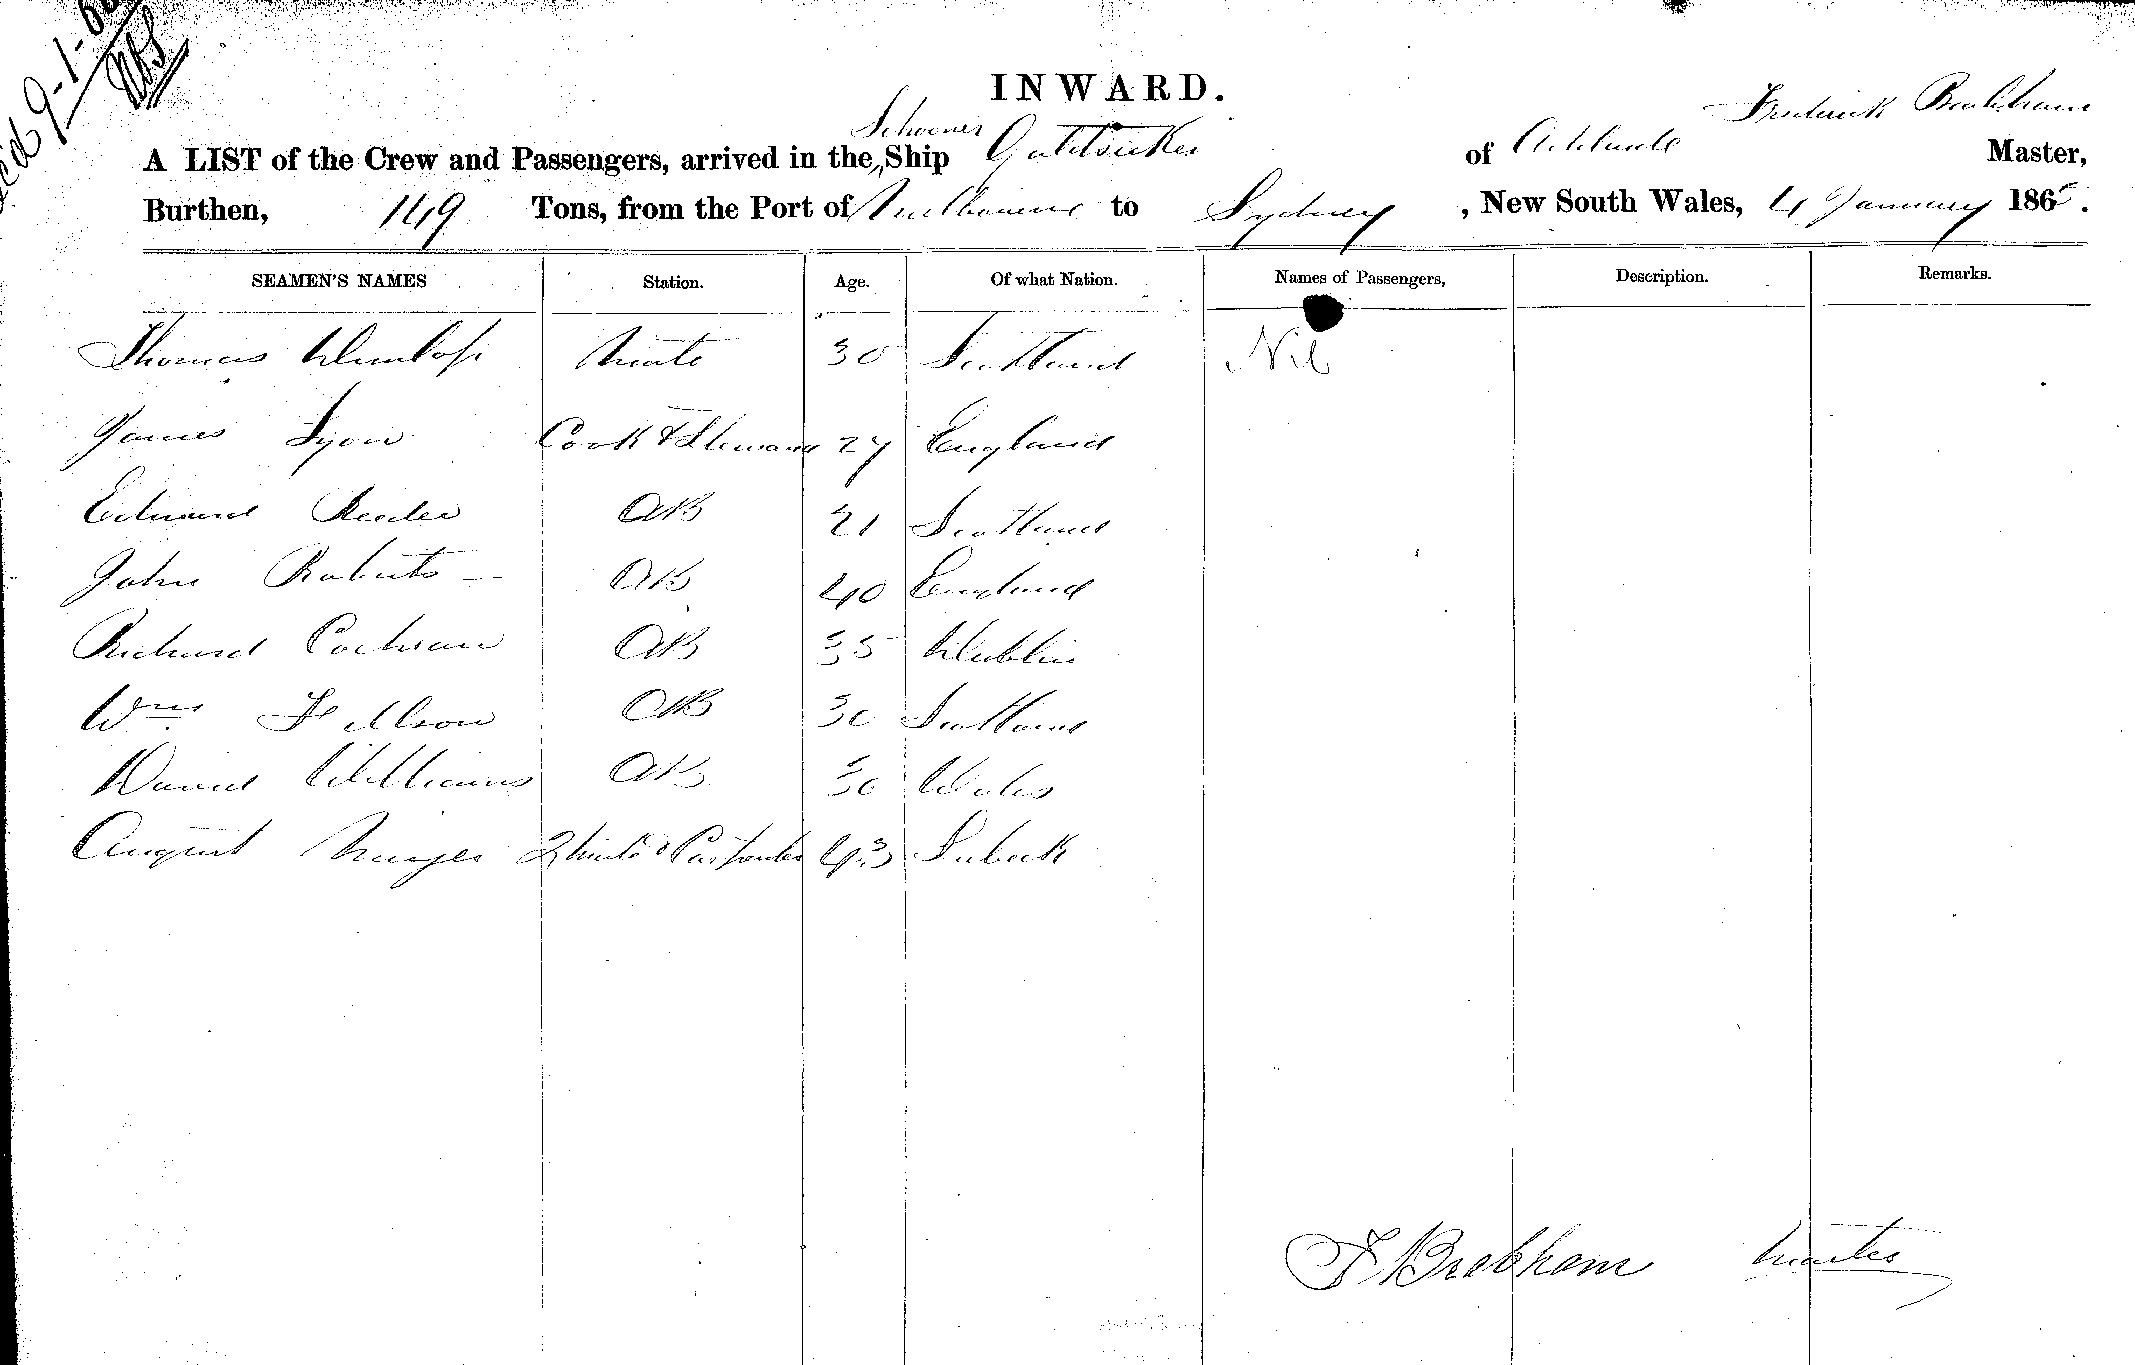 9-1-6
INWARD.
Schooner Frederick
A LIST of the Crew and Passengers, arrived in the Ship of Adelaide Master,
Burthen, 149 Tons, from the Port of Melbourne to Sydney , New South Wales, 4 January 1865.
SEAMEN'S NAMES Station. Age. Of what Nation. Names of Passengers, Description. Remarks.
Thomas Dunlop Mate 30 Scotland Nil
James Lyon Cook & Steward 27 England
Edward Reeder AB 21 Scotland
John Roberts AB 40 England
Richard Cochran AB 35 Dublin
Wm AB 30 Scotland
Daniel Williams AB 30 Wales
August 2 Mate & Carpenter 43 Lubeck
F Brebham Master